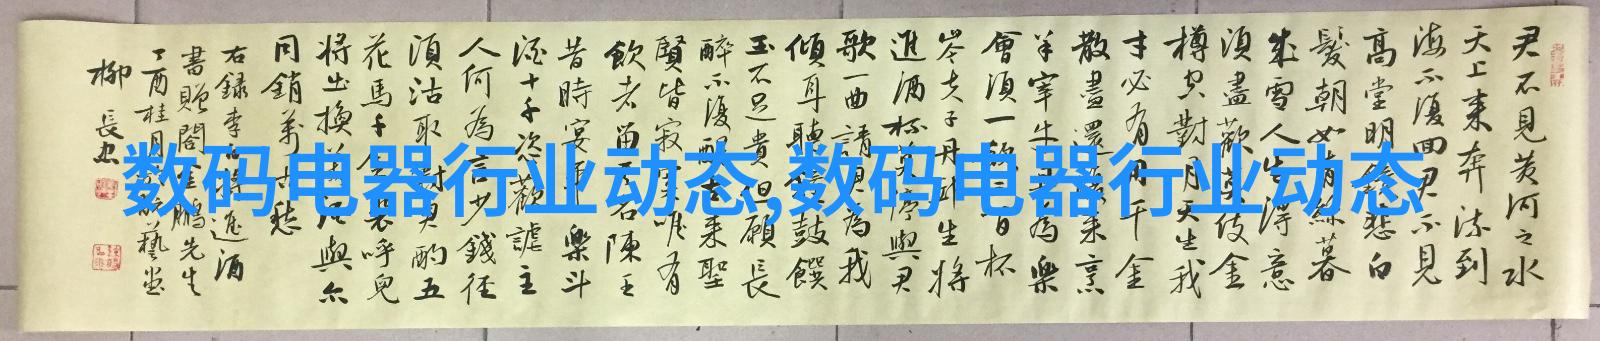 君不見黄河之水
天上来奔流到
海不復回君不見
高堂明鏡悲白
髮朝如青絲暮
成雪人生得意
須盡歡莫使金
樽空對月天生我
才必有用千金
散盡還復来烹
羊宰牛且為樂
會須一飲三百杯
岑夫子丹邱生將
進酒杯莫停與君
歌一曲請君為我
傾耳聽鐘鼓饌
玉不足貴但願長
醉不復醒古来聖
賢皆寂寞唯有
飲者留其名陳王
昔時宴平樂斗
酒十千恣歡謔主
人何為言少錢徑
須沽取對君酌五
花馬千金裘呼兒
將出換美酒與尔
同銷萬古愁
右録李白將進酒
書贈閣金鵬先生
丁酉桂月藝堂
柳長忠
数码电器行业动态,数码电器行业动态